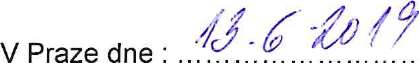 V Praze dne : 13.6-2019